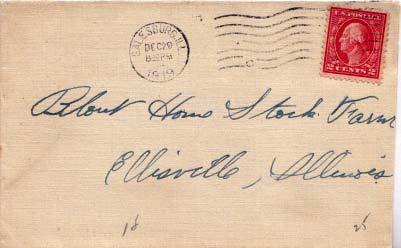 GALESBURG, ILL.
DEC 29
8 PM
1919
U.S. POSTAGE
2 CENTS 2
Blout Home Stock Farm
Ellisville, Illinois